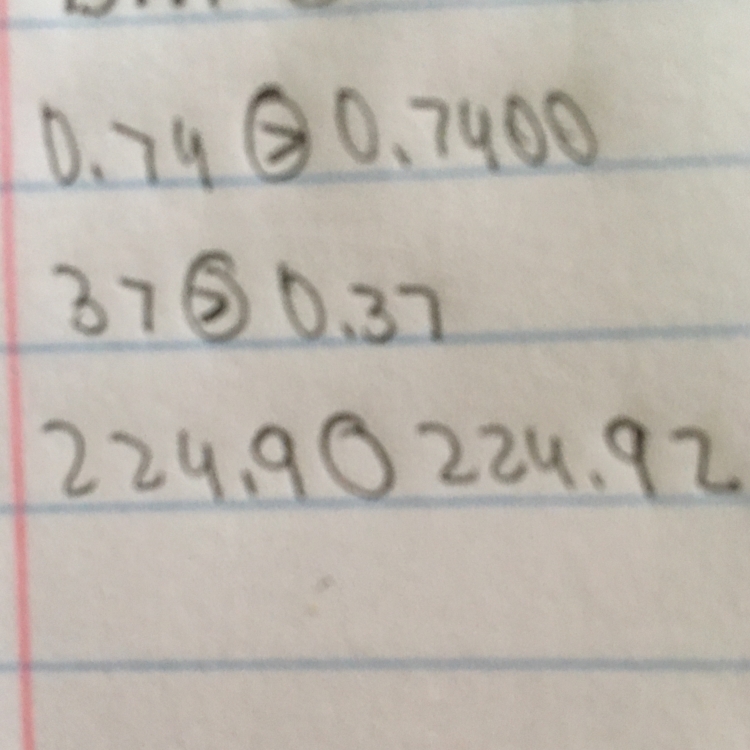 0.74 > 0.7400
37 > 0.37
224.9 ◯ 224.92